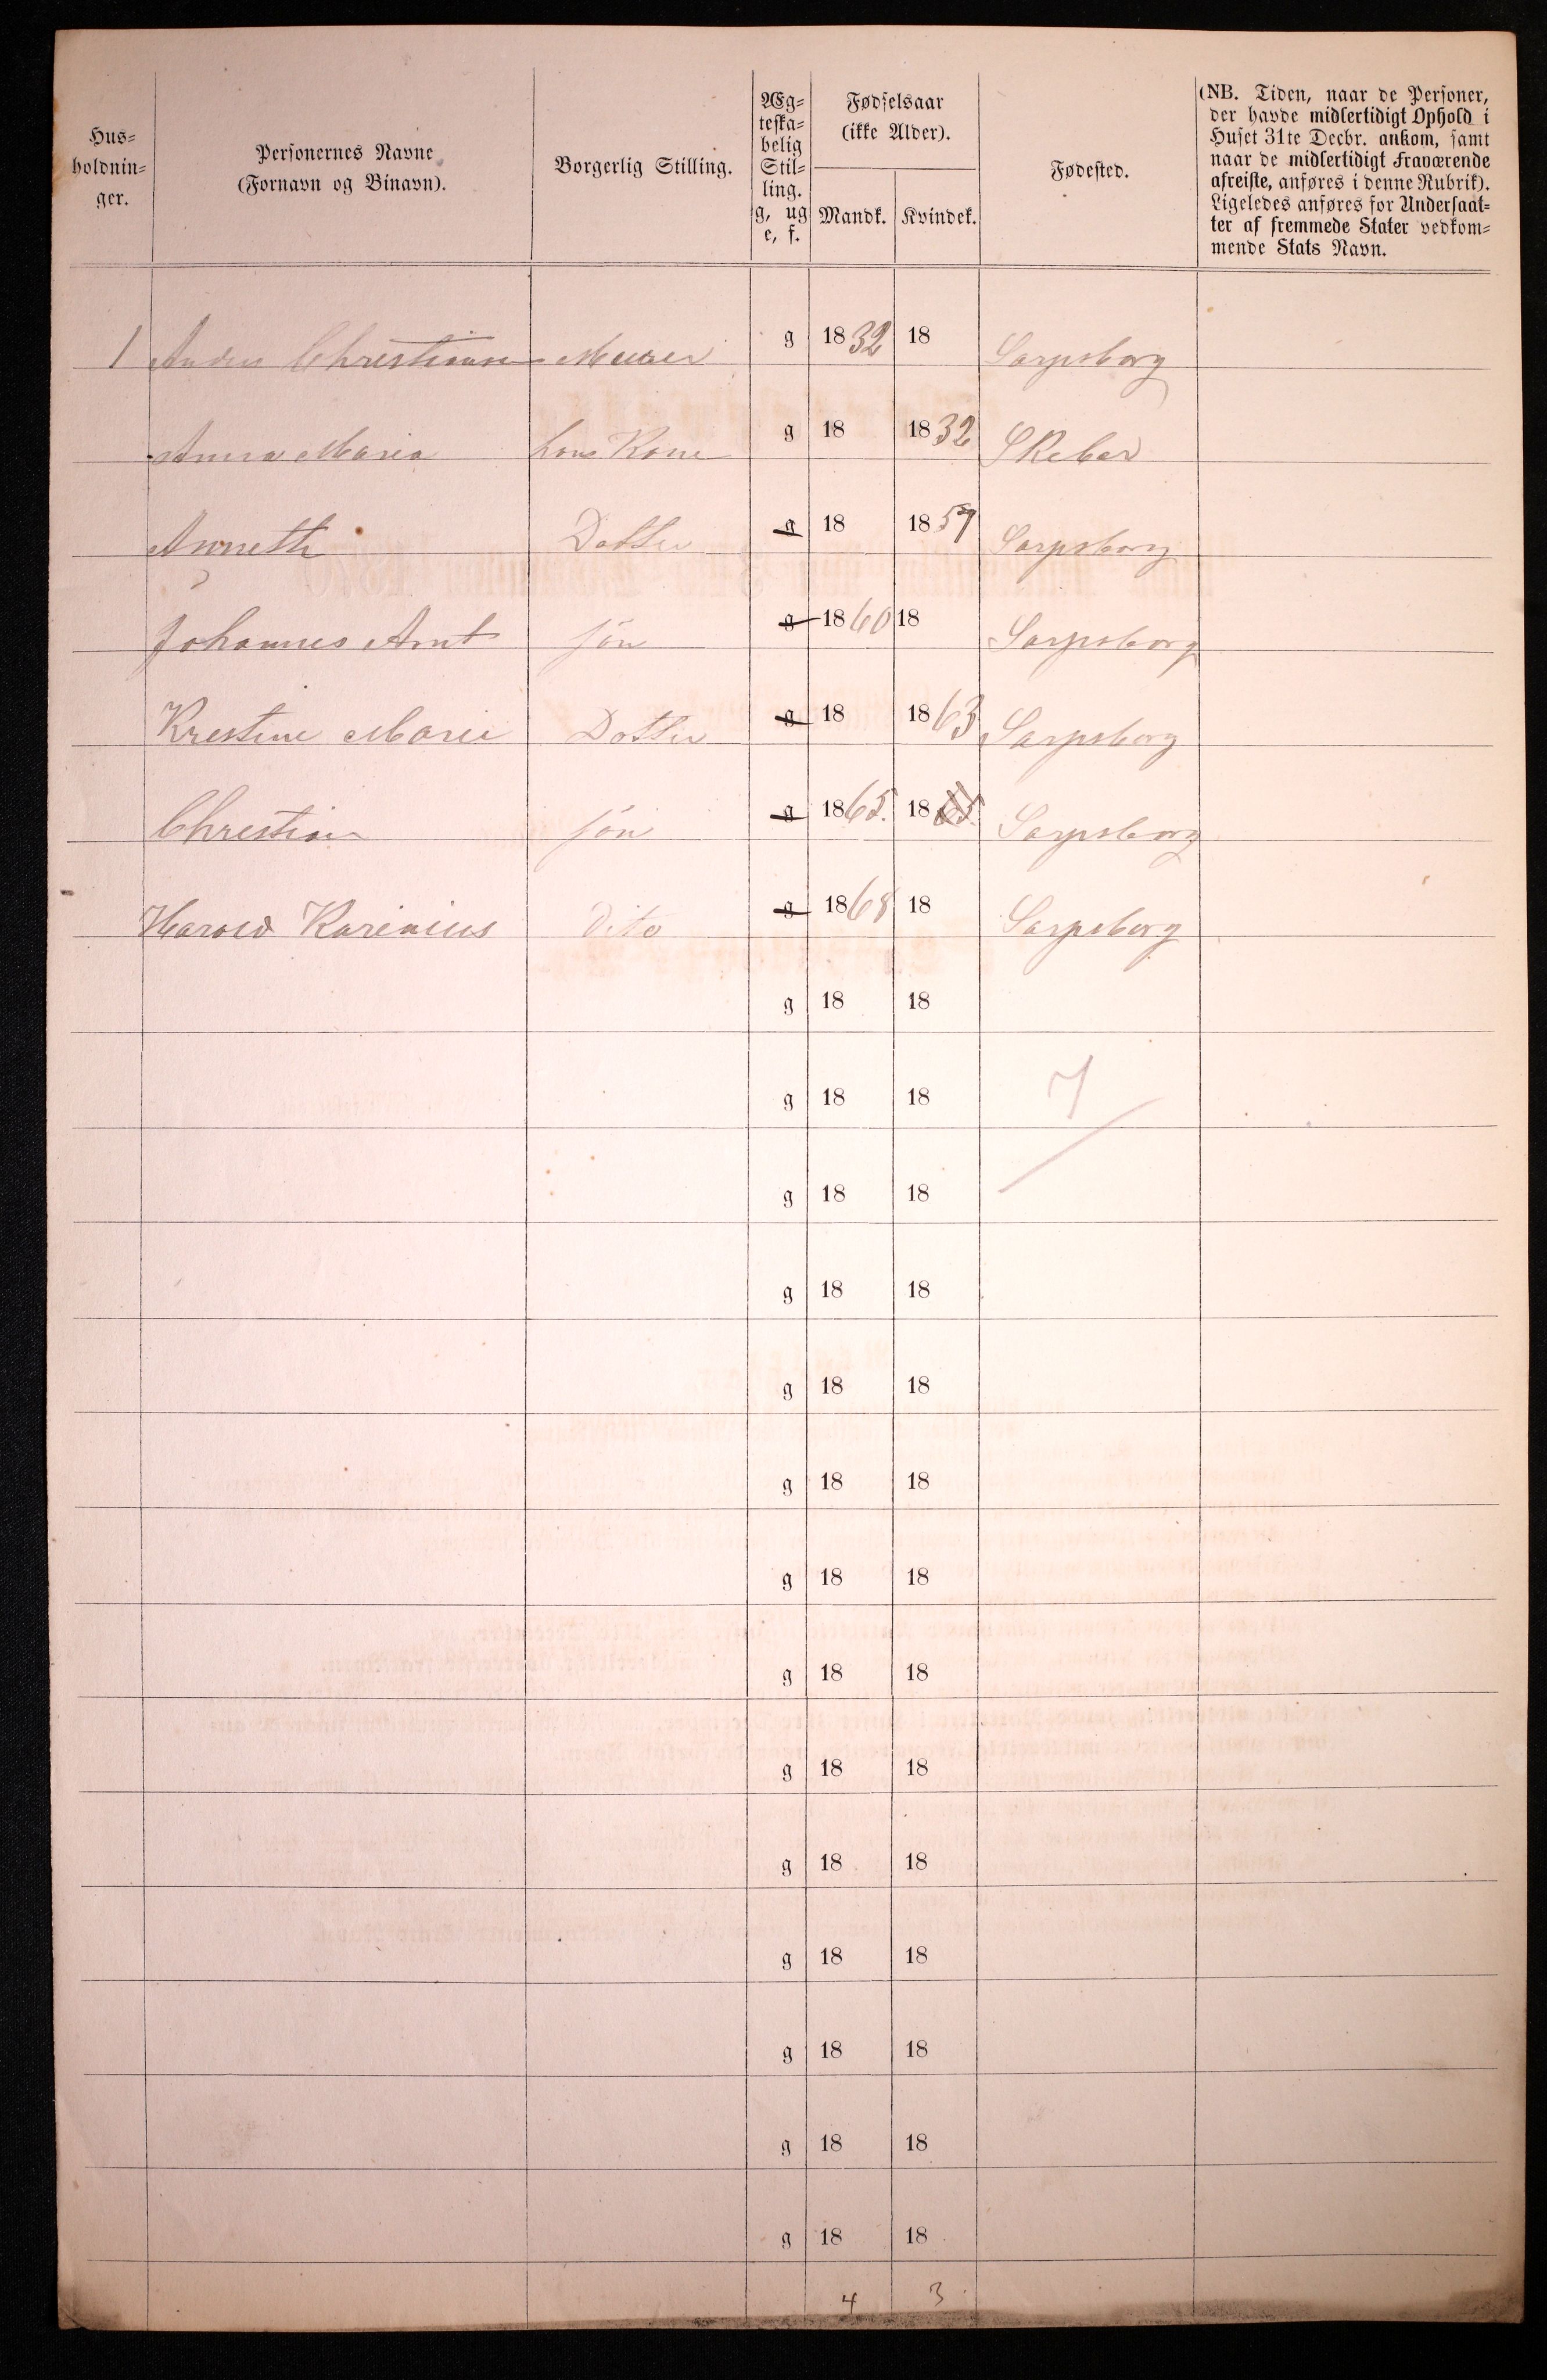 Hus-
holdnin-
ger.
Personernes Navne
(Fornavn og Binavn).
Borgerlig Stilling.
Æg-
teska-
belig
Stil-
ling.
g, ug
e, f.
Fødselsaar
(ikke Alder).
Mandk. Kvindek.
Fødested.
(NB. Tiden, naar de Personer,
der havde midlertidigt Ophold i
Huset 31te Decbr. ankom, samt
naar de midlertidigt Fraværende
afreiste, anføres i denne Rubrik).
Ligeledes anføres for Undersaat-
ter af fremmede Stater vedkom-
mende Stats Navn.
1 Anders Chrestiansen Murer g 1832 18 Sarpsborg
Anna Maria hans Kone g 18 1832 Skeber
Annethe Datter g 18 1857 Sarpsborg
Johannes Arnt Søn g 1860 18 Sarpsborg
Krestine Marie Datter g 18 1863 Sarpsborg
Chrestian Søn g 1865. 1865 Sarpsborg
Harold Karinius Dito g 1868 18 Sarpsborg
g 18 18
g 18 18 7
g 18 18
g 18 18
g 18 18
g 18 18
g 18 18
g 18 18
g 18 18
g 18 18
g 18 18
g 18 18
g 18 18
g 18 18
4 3